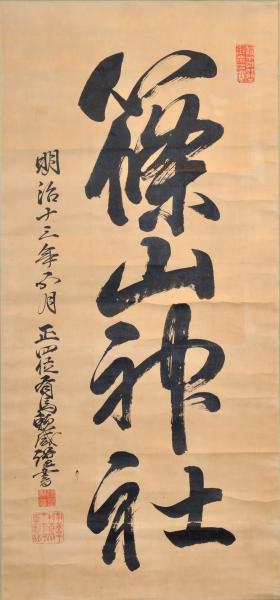 篠山神社
明治十三年五月 正四位有馬頼咸謹書